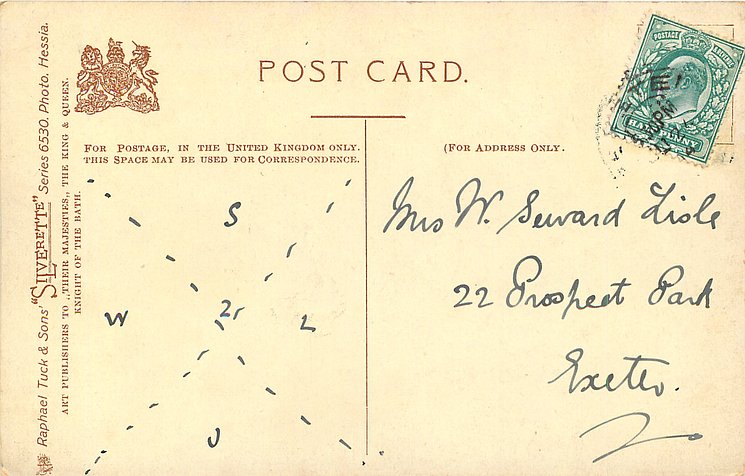 POST CARD.
POSTAGE
HALFPENNY
FOR POSTAGE, IN THE UNITED KINGDOM ONLY.
THIS SPACE MAY BE USED FOR CORRESPONDENCE.
(FOR ADDRESS ONLY.
Raphael Tuck & Sons' "SILVERETTE" Series 6530. Photo. Hessia.
ART PUBLISHERS TO „THEIR MAJESTIES„ THE KING & QUEEN.
KNIGHT OF THE BATH.
S
W 2 L
J
Mrs W. Seward Lisle
22 Prospect Park
Exeter.